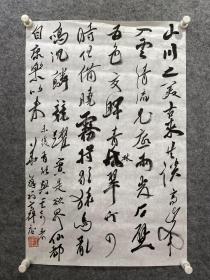 山川之美古來共談高峰
入雲清流見底兩岸石壁
五色交暉青林翠竹四
時俱備曉霧將歇猿鳥亂
鳴沉鱗競躍實是欲界仙都
自康樂以來
未復有能與其奇者